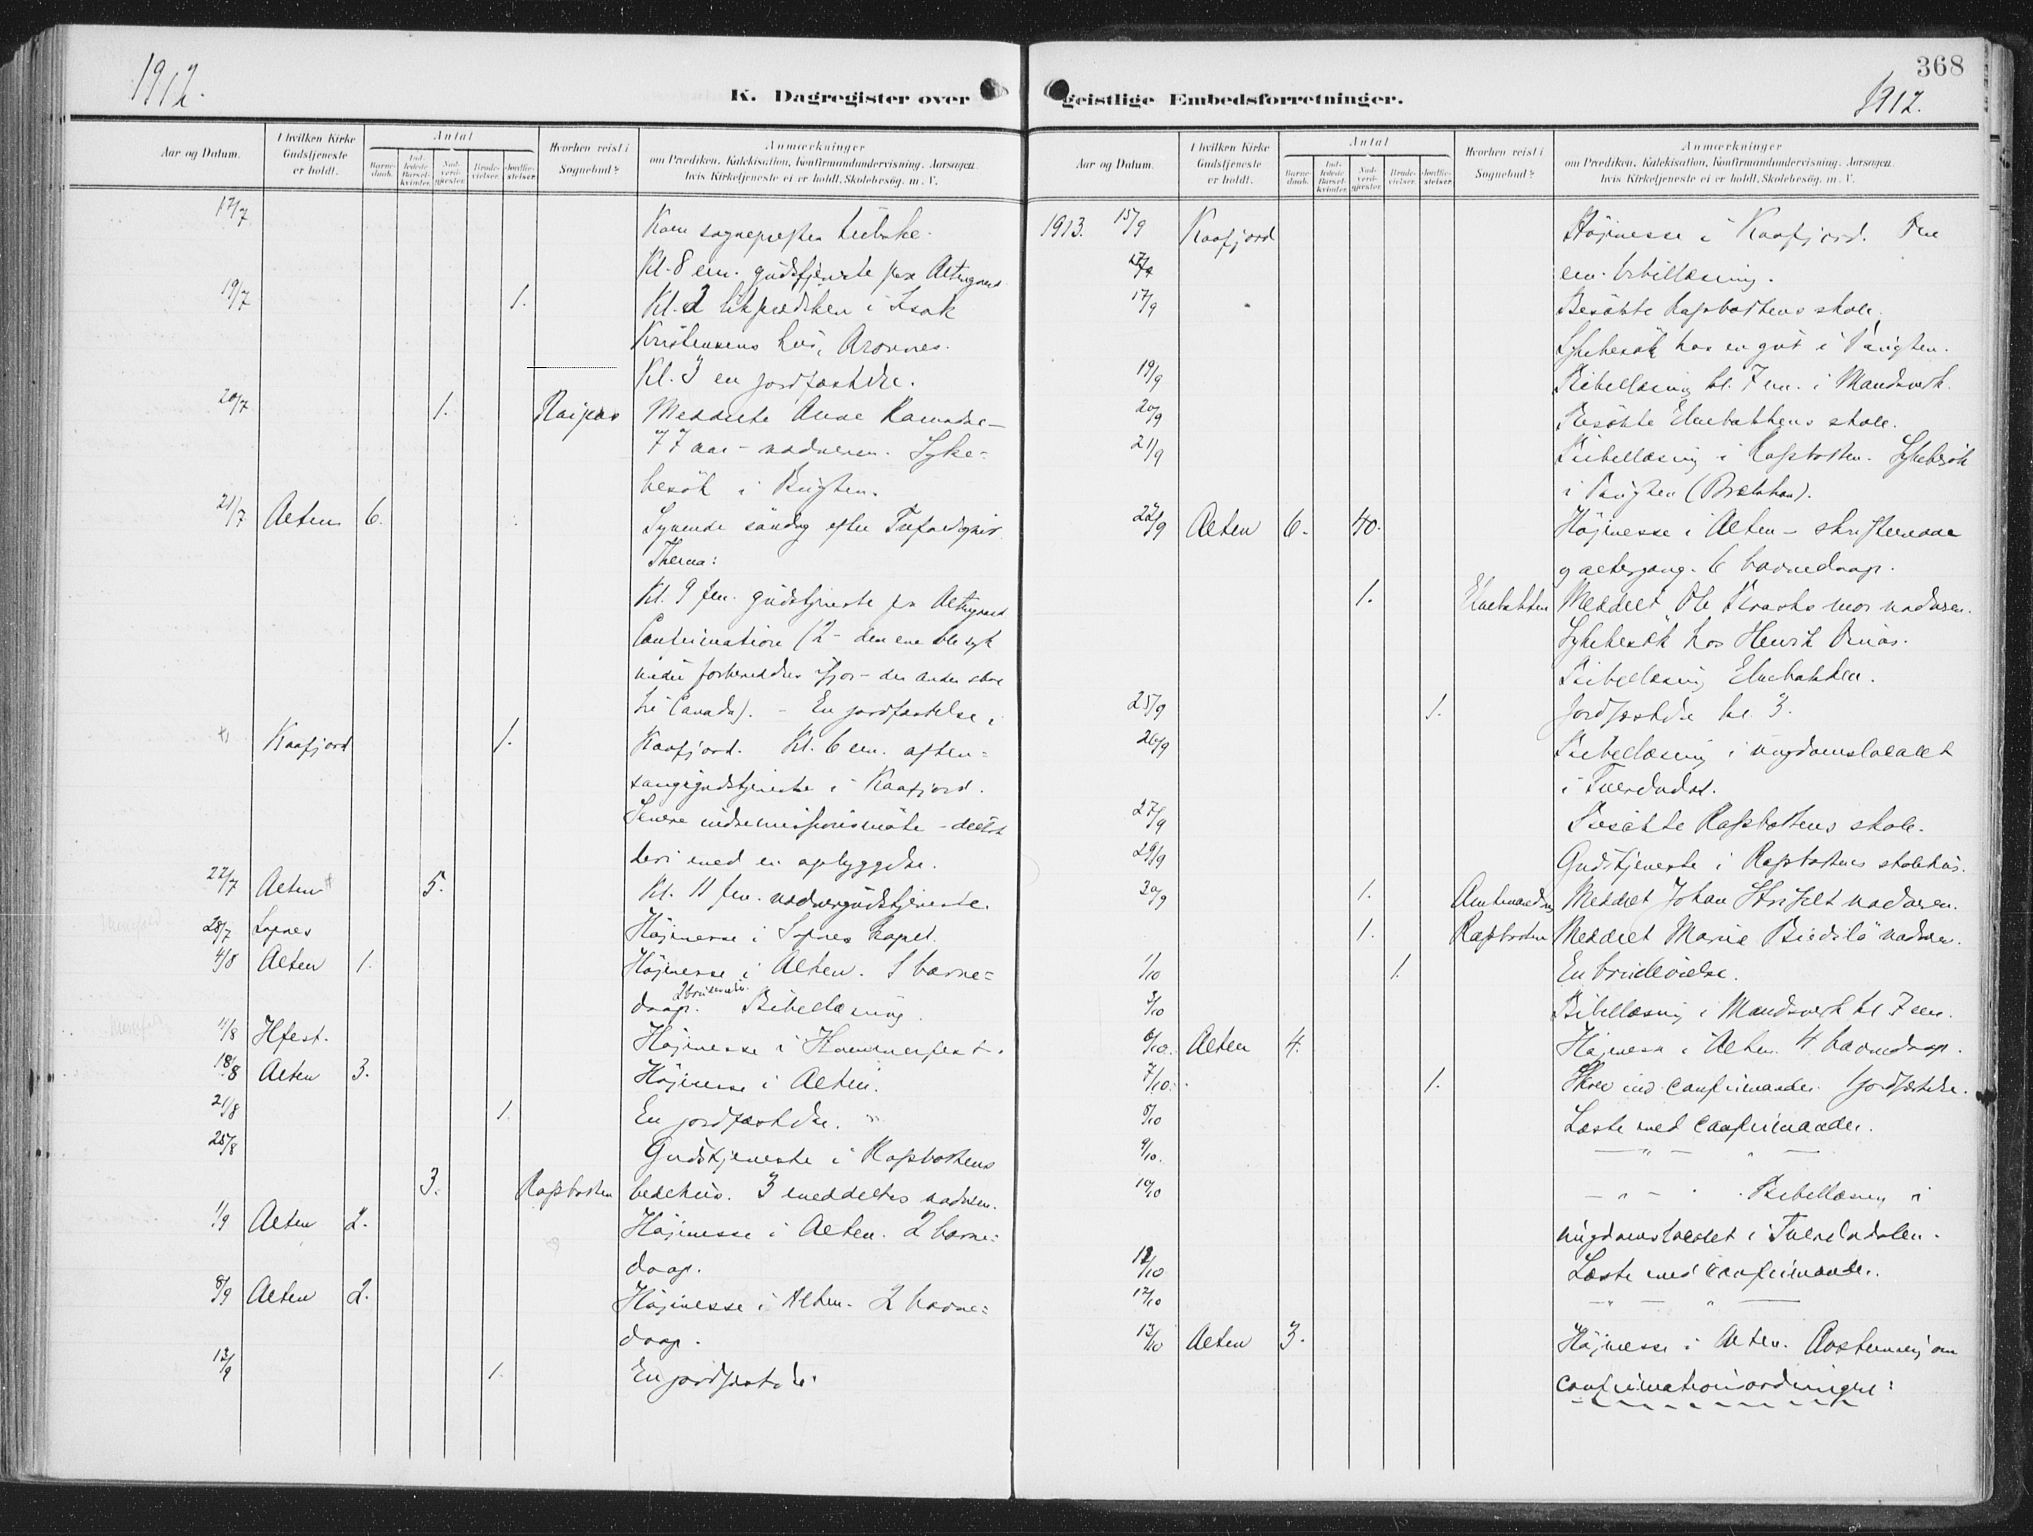 1912.
K. Dagregister over
Aar og Datum.
I hvilken Kirke Gudstjeneste er holdt.
Antal
Barnedaab.
Indledede Barselkvinder.
Nadverdgjester.
Brudevielser.
Jordfæstelser.
Hvorhen reist i Sognebud?
Anmærkninger
om Prædiken, Katekisation, Konfirmandundervisning, Aarsagen,
hvis Kirketjeneste ei er holdt, Skolebesøg, m. V.
17/7 Kom sogneprest
Kl. 8 em. gudstjeneste paa Altengaard
19/7 1. Kl. 2 likprædiken i Isak
Kristensens hus, Aronnes.
Kl. 3 en jordfæstelse.
20/7 1. Raipas Meddelte Anne
77 aar – nadveren. Syke-
besök i Bugten.
21/7 Alten 6. Syvende søndag efter Trefoldighed
Thema:
Kl. 9 fm. gudstjeneste pa Altengaard
Confirmation (2 – den ene ble syk
under forberedelse ifjor – den anden skal
til Canada). – En jordfæstelse i
Kaafjord 1. Kaafjord. Kl. 6 em. aften-
sangsgudstjeneste i Kaafjord.
Senere indremissionsmøte – deltok
deri med en opbyggelse.
22/7 Alten 5. Kl. 11 fm. nadvergudstjeneste.
28/7 Lopnes Højmesse i Lopnes kapel.
4/8 Alten 1. Højmesse i Alten. 1 barne-
daap. Bibellæsning.
11/8 Hfest. Højmesse i Hammerfest.
18/8 Alten 3. Højmesse i Alten.
21/8 1. En jordfæstelse.
25/8 Gudstjeneste i Rafsbottens
3. Rafsbotten bedehus. 3 meddeltes nadveren.
1/9 Alten 2. Højmesse i Alten. 2 barne-
daap.
8/9 Alten 2. Højmesse i Alten. 2 barne-
daap.
12/9 1. En jordfæstelse.
368
1912.
geistlige Embedsforretninger.
Aar og Datum.
I hvilken Kirke Gudstjeneste er holdt.
Antal
Barnedaab.
Indledede Barselkvinder.
Nadverdgjester.
Brudevielser.
Jordfæstelser.
Hvorhen reist i Sognebud?
Anmærkninger
om Prædiken, Katekisation, Konfirmandundervisning, Aarsagen,
hvis Kirketjeneste ei er holdt, Skolebesøg, m. V.
1913. 15/9 Kaafjord Højmesse i Kaafjord.
em. bibellæsning.
17/9 Besökte Rafsbottens skole.
Sykebesök hos en gut i Bugten.
19/9 Bibellæsning kl. 7 em. i Mandsverk.
20/9 Besökte Elvebakkens skole.
21/9 Bibellæsning i Rafsbotten. Sykebesök
i Bugten
22/9 Alten 6. 40. Højmesse i Alten – skriftemaal
og altergang. 6 barnedaap.
1. Elvebakken Meddelt Ole mor nadveren.
Sykebesök hos Henrik
Bibellæsning Elvebakken.
25/9 1. Jordfæstelse kl. 3.
26/9 Bibellæsning i ungdomslokalet
i Tverelvdal.
27/9 Besökte Rafsbottens skole.
29/9 Gudstjeneste i Rafsbottens skolehus.
30/9 1. Meddelt Johan nadveren.
1. Rafsbotten Meddelt Marie nadveren.
1/10 1. En brudevielse.
3/10 Bibellæsning i Mandsverk kl. 7 em.
6/10. Alten 4. Højmesse i Alten. 4 barnedaap.
7/10. 1. Skrev ind confirmander. 1 jordfæstelse.
8/10 Læste med confirmander.
9/10. — " — " —
10/10 — " — Bibellæsning i
ungdomslokalet i Tverelvdalen.
12/10 Læste med confirmander.
12/10 — " — " —
13/10 Alten 3. Højmesse i Alten. Avstemning om
confirmationsordningen: